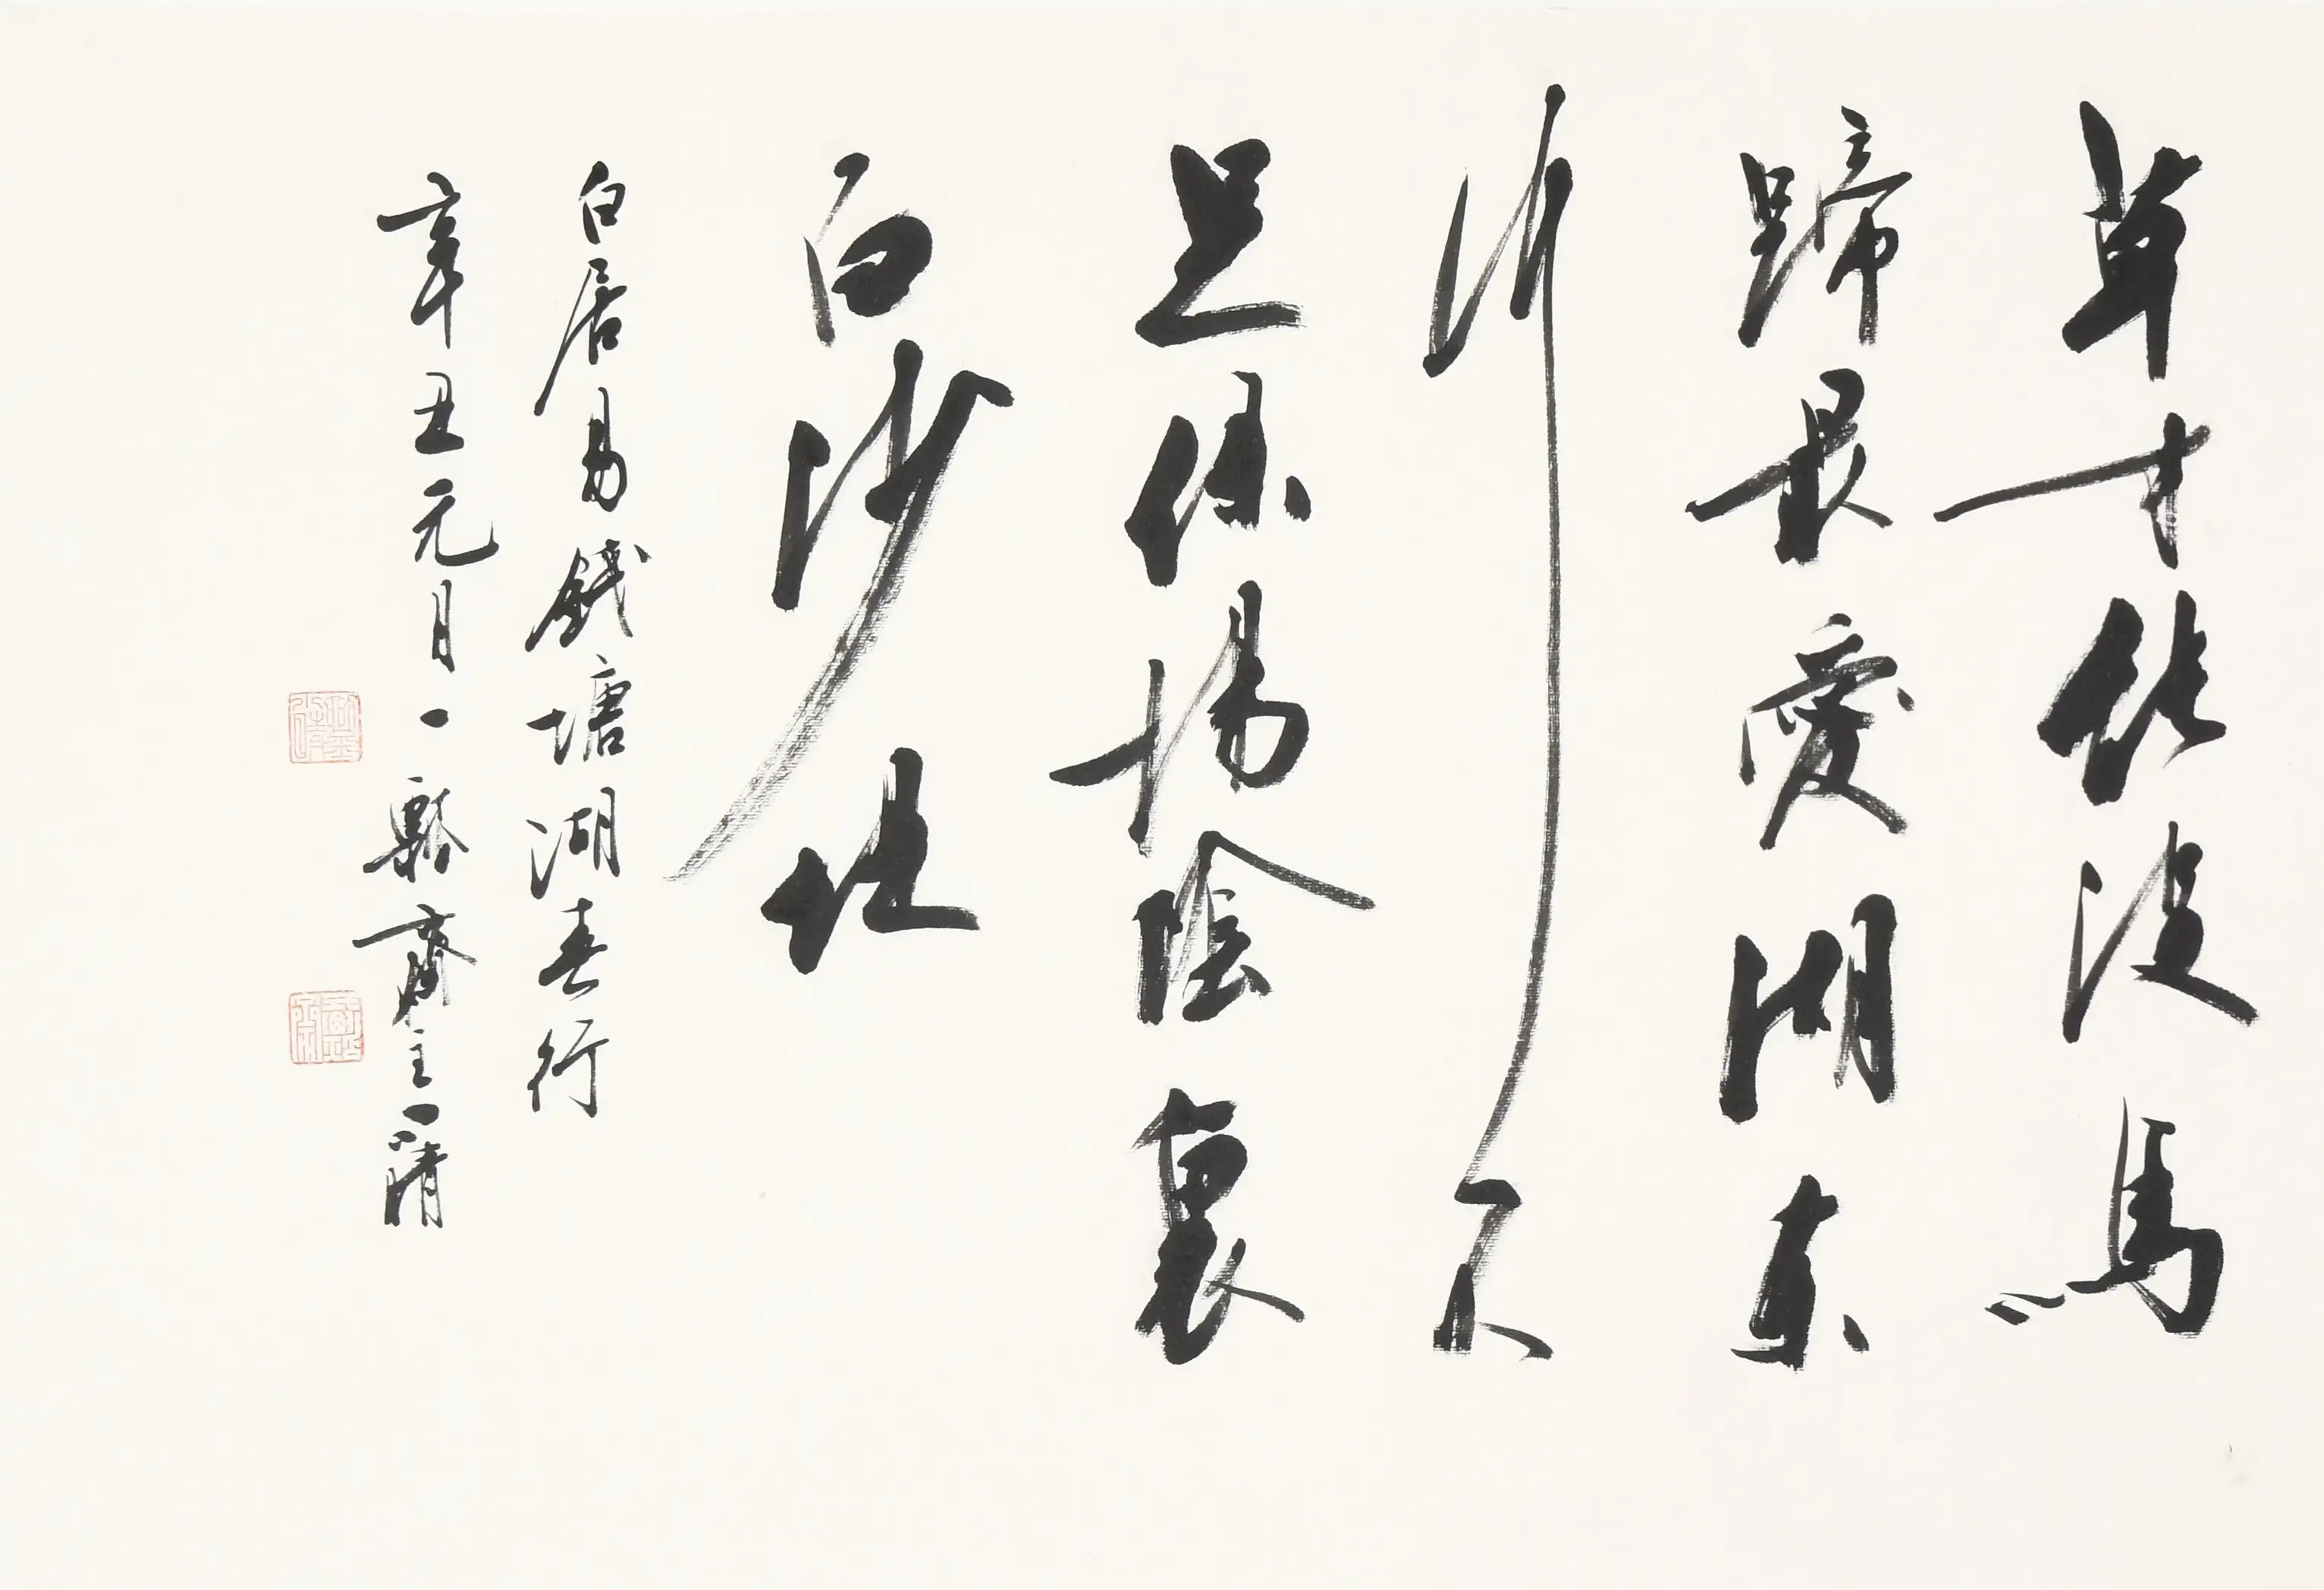 草才能没馬
蹄最愛湖東
行不
足綠楊陰裏
白沙堤
白居易錢塘湖春行
辛丑元月一瓢齋主一